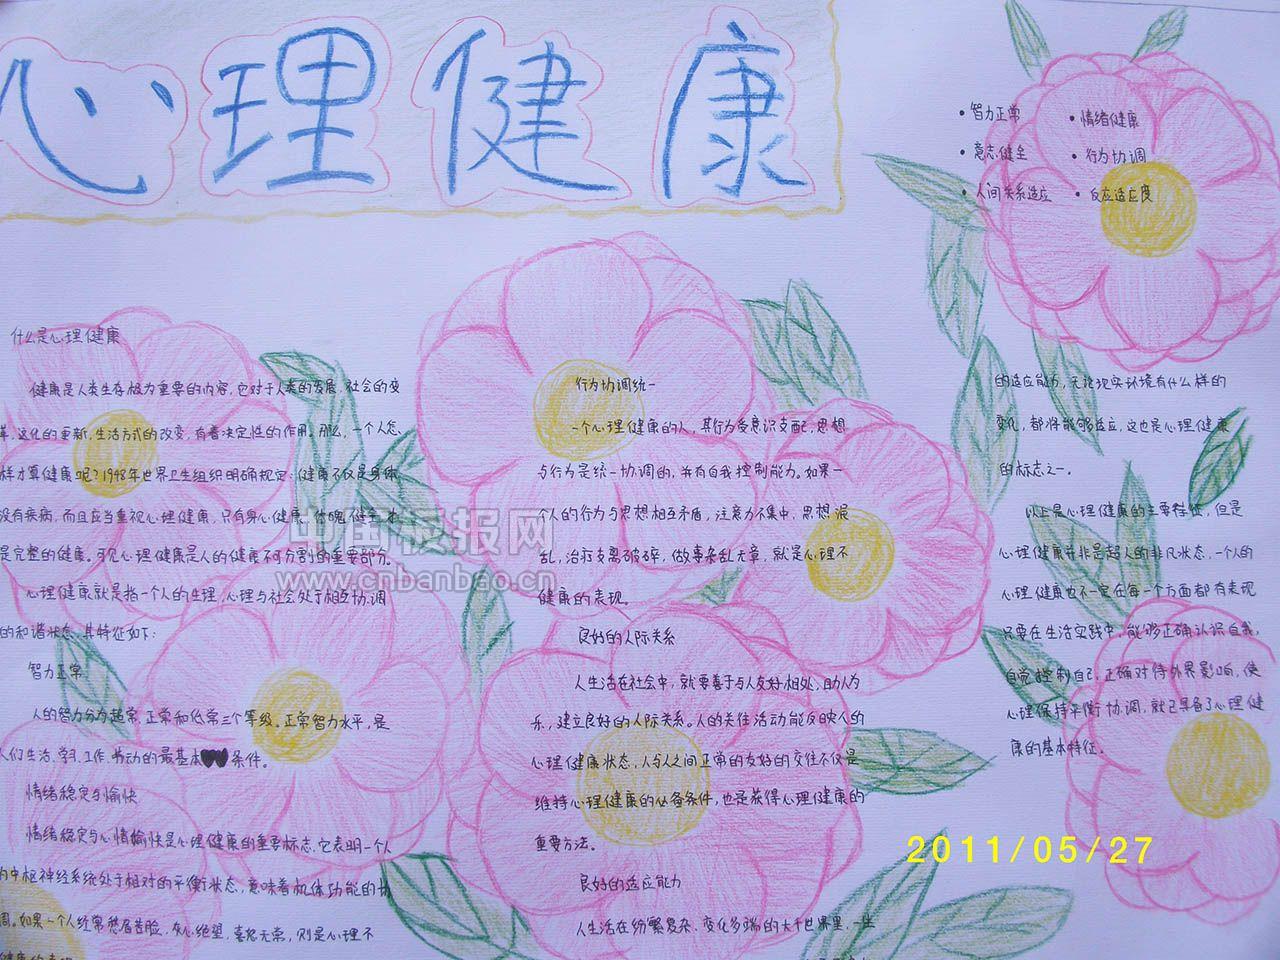 心理健康
• 智力正常 • 情绪健康
• 意志健全 • 行为协调
• 人间关系适应 • 反应适应度
什么是心理健康
健康是人类生存极为重要的内容,它对于人类的发展,社会的变
革,文化的更新,生活方式的改变,有着决定性的作用。那么,一个人怎
样才算健康呢?1948年世界卫生组织明确规定:健康不仅是身体
没有疾病,而且应当重视心理健康,只有身心健康、体魄健全,才
是完整的健康。可见心理健康是人的健康不可分割的重要部分。
心理健康就是指一个人的生理、心理与社会处于相互协调
的和谐状态,其特征如下:
智力正常
人的智力分为超常、正常和低常三个等级。正常智力水平,是
人们生活、学习、工作、劳动的最基本条件。
情绪稳定与愉快
情绪稳定与心情愉快是心理健康的重要标志,它表明一个人
的中枢神经系统处于相对的平衡状态,意味着机体功能的协
调。如果一个人经常愁眉苦脸,灰心绝望,喜怒无常,则是心理不
健康的表现
行为协调统一
一个心理健康的人,其行为受意识支配,思想
与行为是统一协调的,并有自我控制能力。如果一
个人的行为与思想相互矛盾,注意力不集中,思想混
乱,语言支离破碎,做事杂乱无章,就是心理不
健康的表现。
良好的人际关系
人生活在社会中,就要善于与人友好相处,助人为
乐,建立良好的人际关系。人的关往活动能反映人的
心理健康状态,人与人之间正常的友好的交往不仅是
维持心理健康的必备条件,也是获得心理健康的
重要方法。
良好的适应能力
人生活在纷繁复杂、变化多端的大千世界里,一生
的适应能力,无论现实环境有什么样的
变化,都将能够适应,这也是心理健康
的标志之一。
以上是心理健康的主要特征,但是
心理健康并非是超人的非凡状态,一个人的
心理健康也不一定在每一个方面都有表现
只要在生活实践中,能够正确认识自我,
自觉控制自己,正确对待外界影响,使
心理保持平衡协调,就已具备了心理健
康的基本特征。
中国板报网
www.cnbanbao.cn
2011/05/27